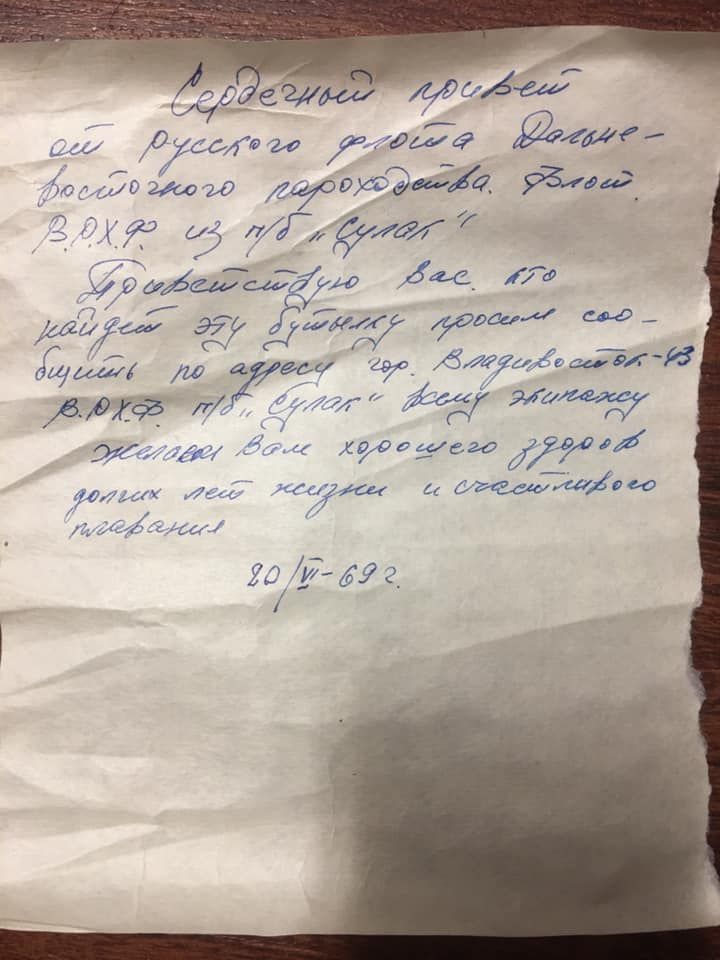 Сердечный привет
от русского флота Дальне-
восточного пароходства. Флот
В.Р.Х.Ф. из п/б „Сулак"
Приветствую Вас. кто
найдет эту бутылку просим соо-
бщить по адресу гор. Владивосток-43
В.Р.Х.Ф. п/б „Сулак" всему экипажу
желаем Вам хорошего здоров
долгих лет жизни и счастливого
плавания
20/VI-69 г.